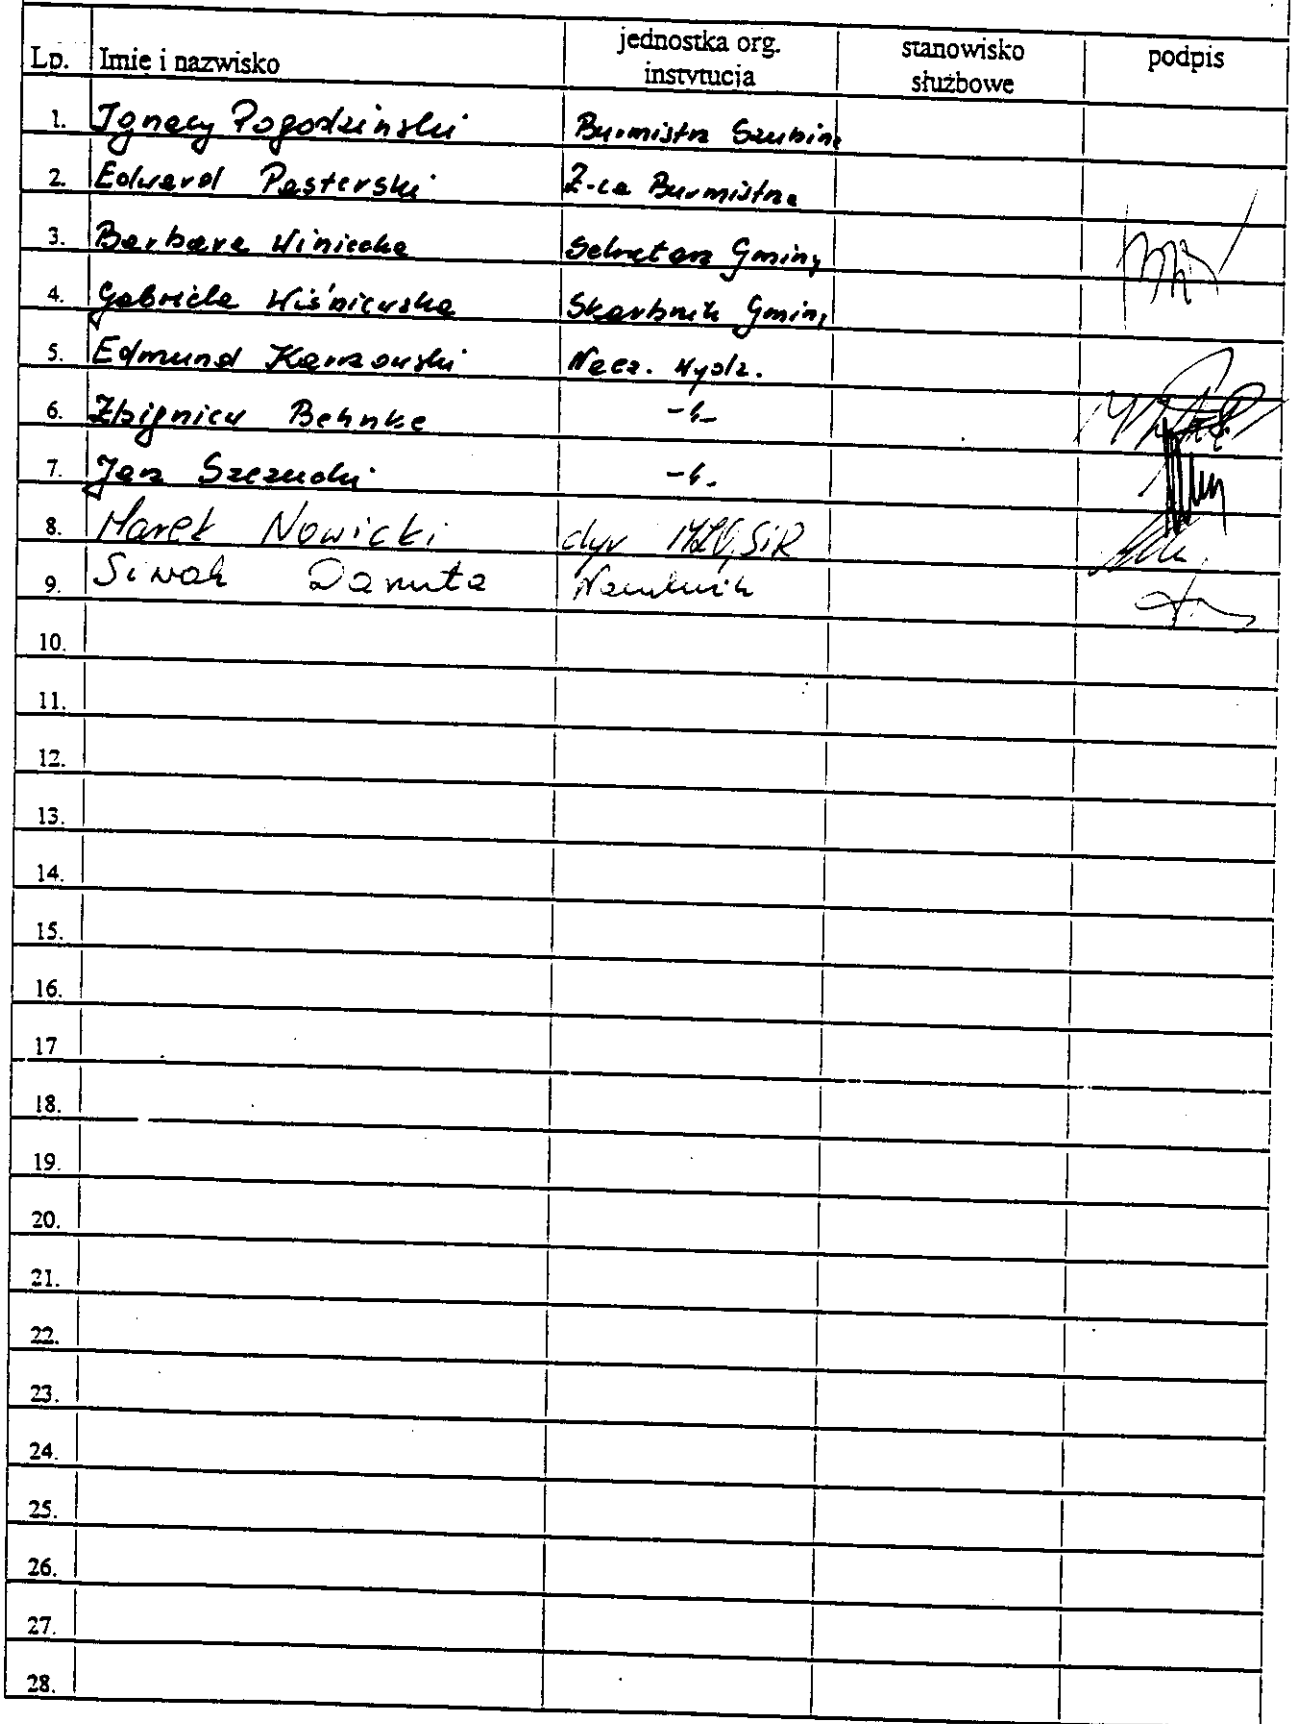 Lp. Imię i nazwisko jednostka org. instytucja stanowisko służbowe podpis
1. Ignacy Pogodziński Burmistrz Szubina
2. Edward Pasterski Z-ca Burmistrza
3. Barbara Winiecka Sekretarz Gminy
4. Gabriela Wiśniewska Skarbnik Gminy
5. Edmund Nacz. Wydz.
6. Zbigniew Behnke -"-
7. Jerz -"-
8. Marek Nowicki dyr
9. Siwak Danuta Naczelnik
10.
11.
12.
13.
14.
15.
16.
17
18.
19.
20.
21.
22.
23.
24.
25.
26.
27.
28.